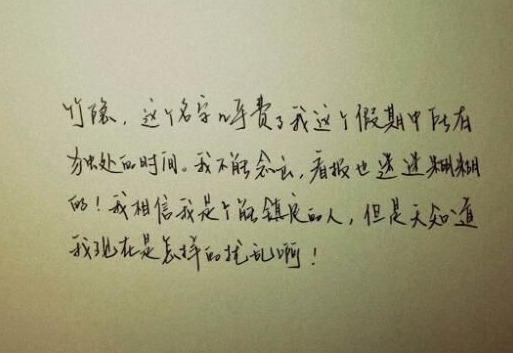 竹隐，这个名字呼费了我这个假期中所有
独处的时间。我不能念书，看报也迷迷糊糊
的！我相信我是个能镇定的人，但是天知道
我现在是怎样的扰乱啊！